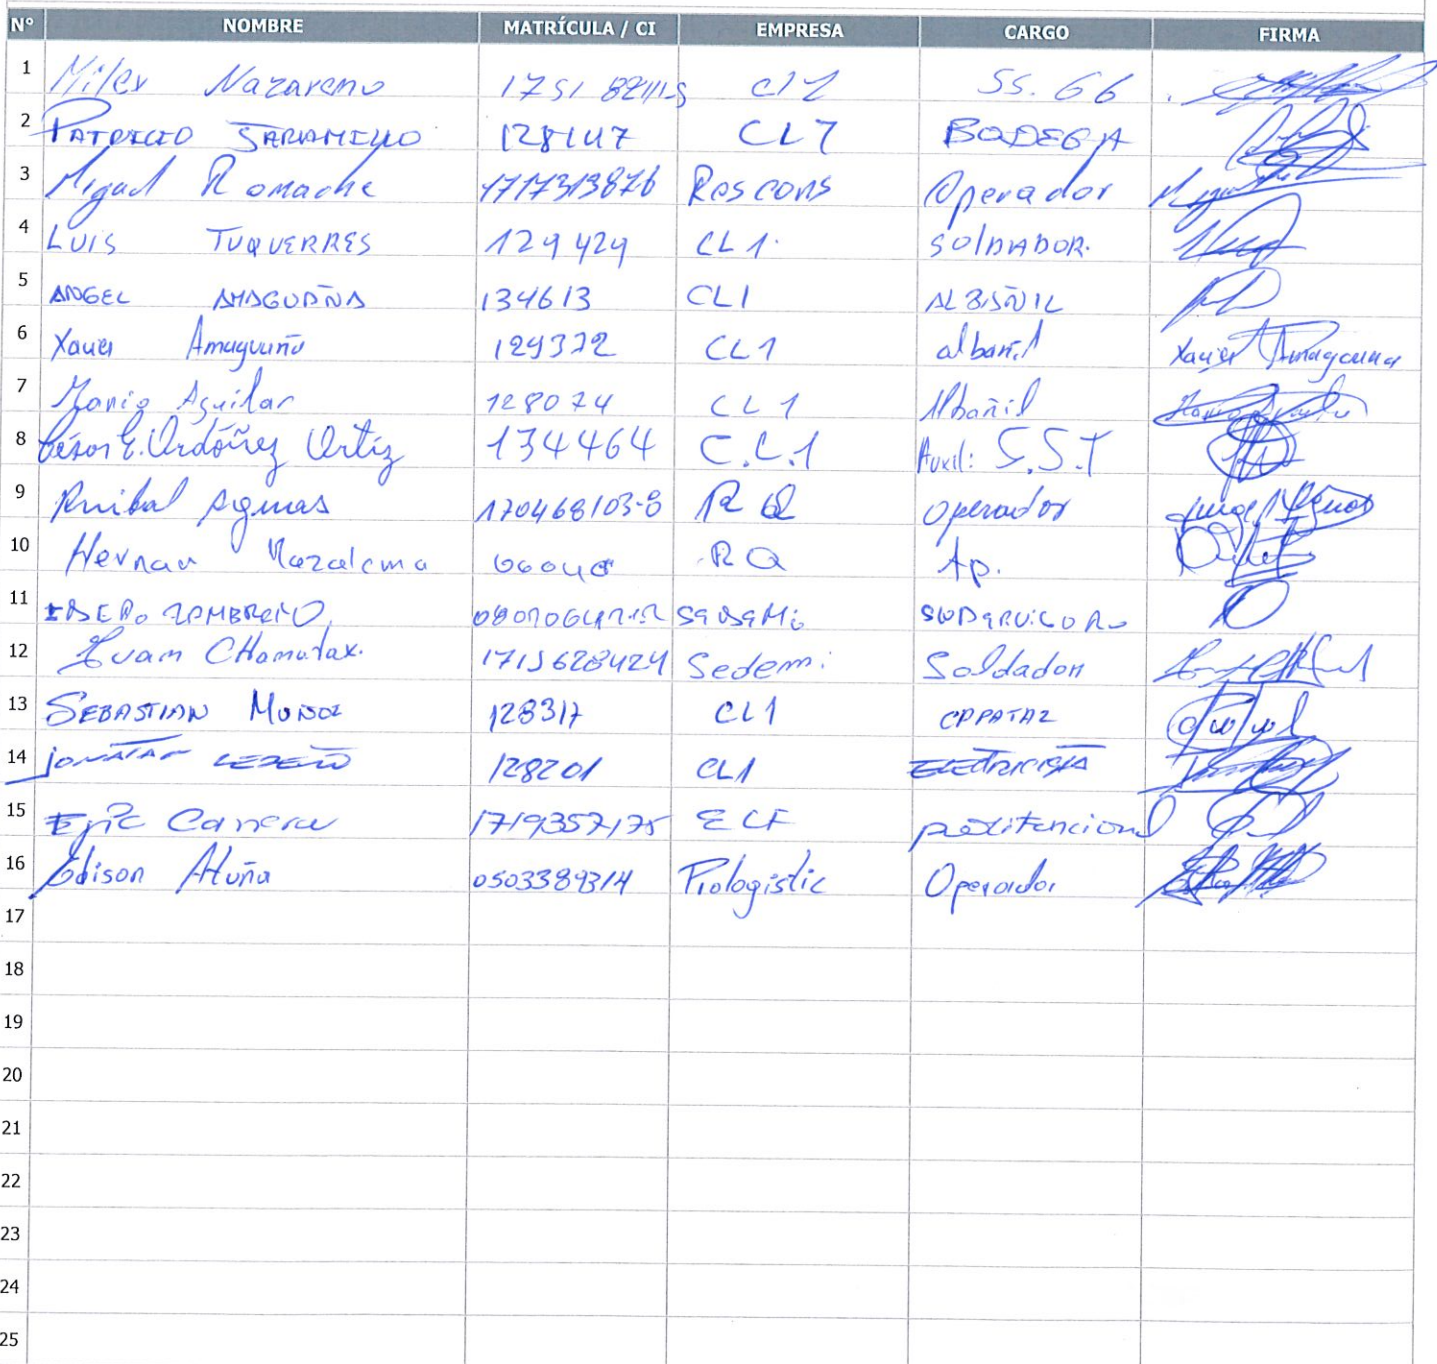 N° NOMBRE MATRÍCULA / CI EMPRESA CARGO FIRMA
1 Miler Nazareno SS. GG
2 PATRICIO JARAMILLO 128147 CL1 BODEGA
3 Miguel Romache 1717313876 Rescons Operador
4 LUIS TUQUERRES 129429 CL1. SOLDADOR.
5 ANGEL AMAGUAÑA 134613 CL1 ALBAÑIL
6 Xavier Amaguaña 129372 CL1 albañil Xavier Amaguaña
7 Mario Aguilar 128074 CL1 Albañil
8 César E. Ordóñez Ortíz 134464 C.L.1 Auxil: S.S.T
9 Anibal Agmas 170468103-8 RQ operador
10 Hernan RQ Ap.
11 ZAMBRANO
12 Juan CHamatax. 1715628424 Sedemi Soldador
13 SEBASTIAN MUÑOZ 128317 CL1 CAPATAZ
14 JONATAN CEDEÑO 128201 CL1 ELECTRICISTA
15 Eric 1719357175 ECF
16 Edison Atuña 0503389314 Prologistic Operador
17
18
19
20
21
22
23
24
25